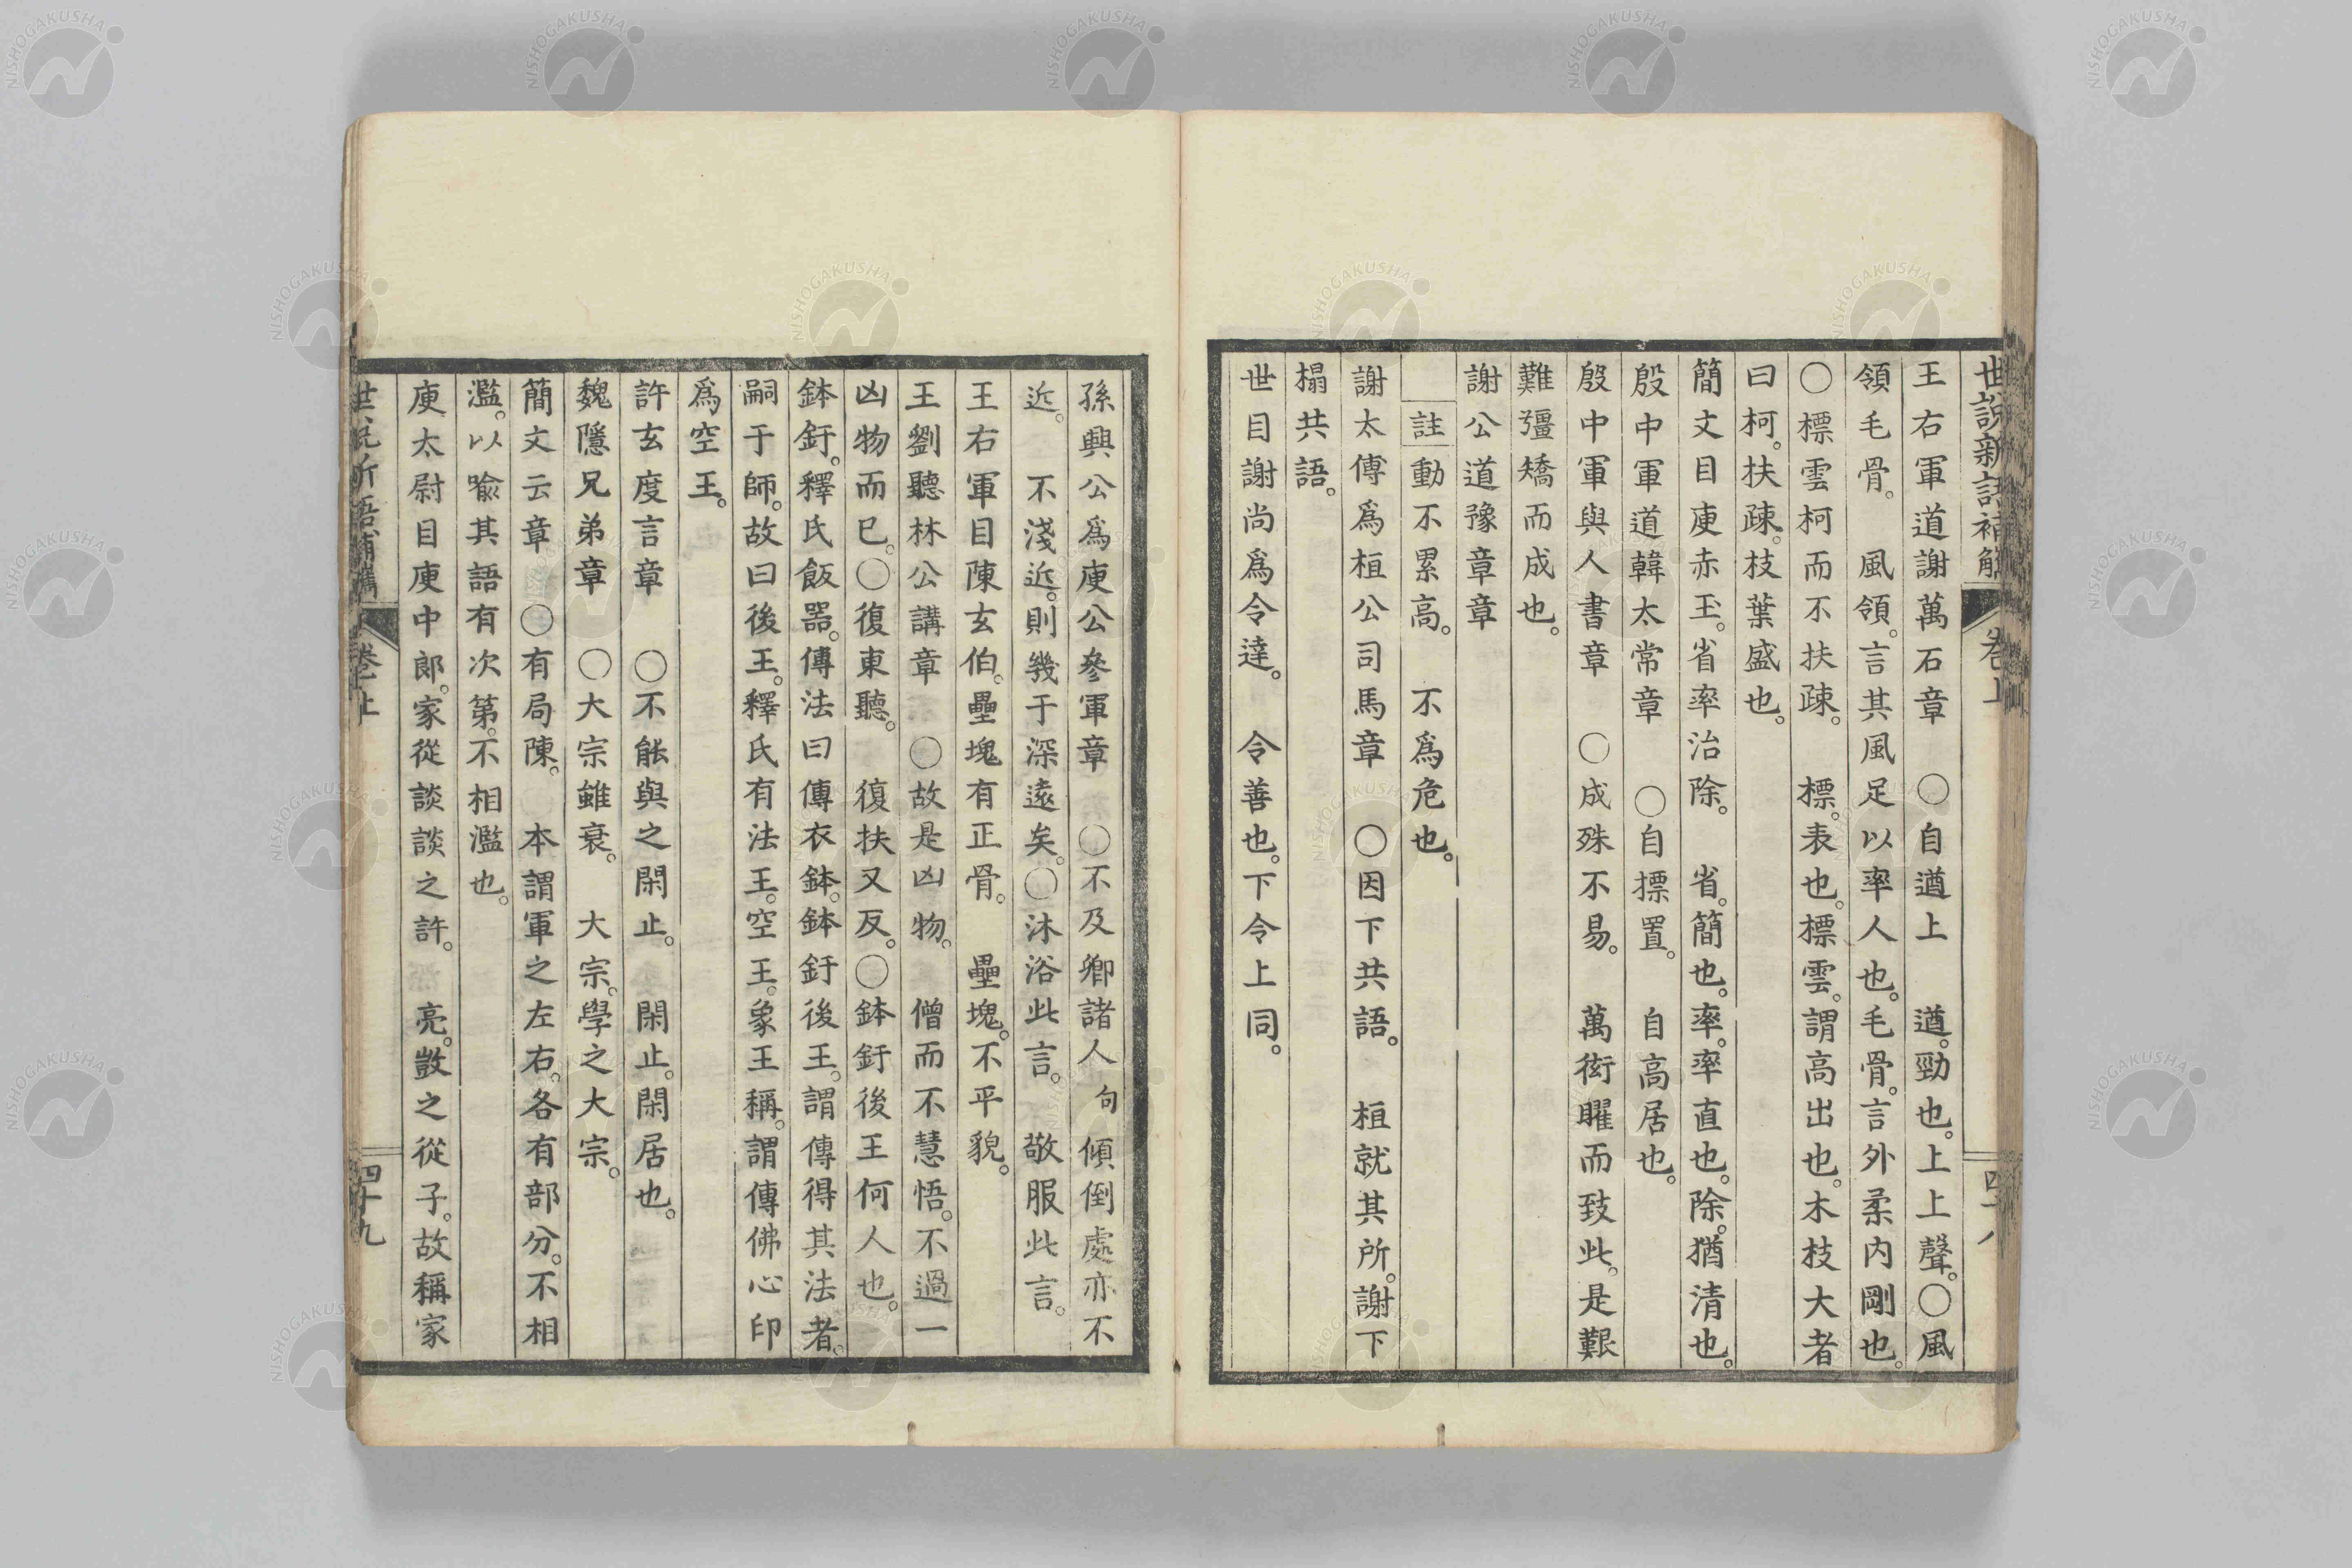 世說新語補觿 卷上 四十八
王右軍道謝萬石章　○自遒上　遒。勁也。上上聲。○風
領毛骨。　風領。言其風足以率人也。毛骨。言外柔内剛也。
○標雲柯而不扶疎。　標。表也。標雲。謂高出也。木枝大者
曰柯。扶疎。枝葉盛也。
簡文目庾赤玉。省率治除。　省。簡也。率。率直也。除。猶清也。
殷中軍道韓太常章　○自標置。　自高居也。
殷中軍與人書章　○成殊不易。　萬衒曜而致此。是艱
難彊矯而成也。
謝公道豫章章
註動不累高。　不爲危也。
謝太傅爲桓公司馬章　○因下共語。　桓就其所。謝下
榻共語。
世目謝尚爲令達。　令善也。下令上同。
孫興公爲庾公參軍章　○不及卿諸人句　傾倒處亦不
近。　不淺近。則幾于深遠矣。○沐浴此言。　敬服此言。
王右軍目陳玄伯。壘塊有正骨。　壘塊。不平貌。
王劉聽林公講章　○故是凶物。　僧而不慧悟。不過一
凶物而已。○復東聽。　復扶又反。○鉢釪後王何人也。
鉢釪。釋氏飯器。傳法曰傳衣鉢。鉢釪後王。謂傳得其法者。
嗣于師。故曰後王。釋氏有法王。空王。象王稱。謂傳佛心印
爲空王。
許玄度言章　○不能與之閑止。　閑止。閑居也。
魏隱兄弟章　○大宗雖衰。　大宗。學之大宗。
簡文云章　○有局陳。　本謂軍之左右。各有部分。不相
濫。以喩其語有次第。不相濫也。
庾太尉目庾中郎。家從談談之許。　亮。敳之從子。故稱家
世說新語補觿 卷上 四十九